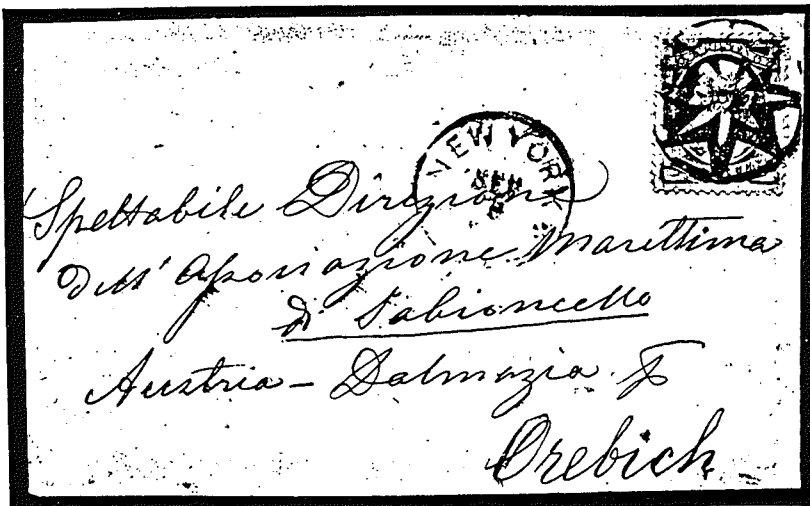 NEW YORK
Spettabile Direzione
Dell' Associazione Marittima
di Sabioncello
Austria - Dalmazia
Orebich